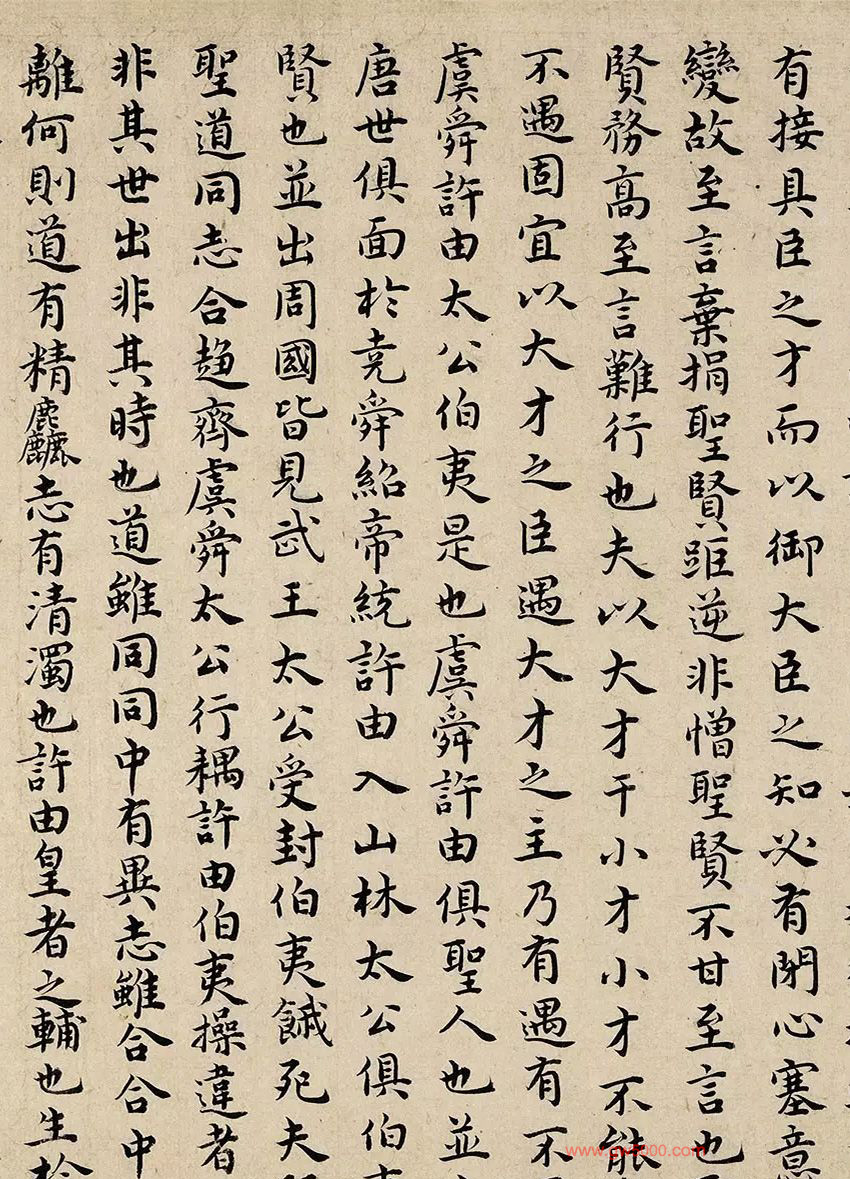 有接具臣之才而以御大臣之知必有閉心塞意
變故至言棄捐聖賢距逆非憎聖賢不甘至言也
賢務高至言難行也夫以大才干小才小才不能
不遇固宜以大才之臣遇大才之主乃有遇有不
虞舜許由太公伯夷是也虞舜許由俱聖人也並
唐世俱面於堯舜紹帝統許由入山林太公俱伯
賢也並出周國皆見武王太公受封伯夷餓死夫
聖道同志合趨齊虞舜太公行耦許由伯夷操違者
非其世出非其時也道雖同同中有異志雖合合中
離何則道有精麤志有清濁也許由皇者之輔也生於
www.gwl000.com